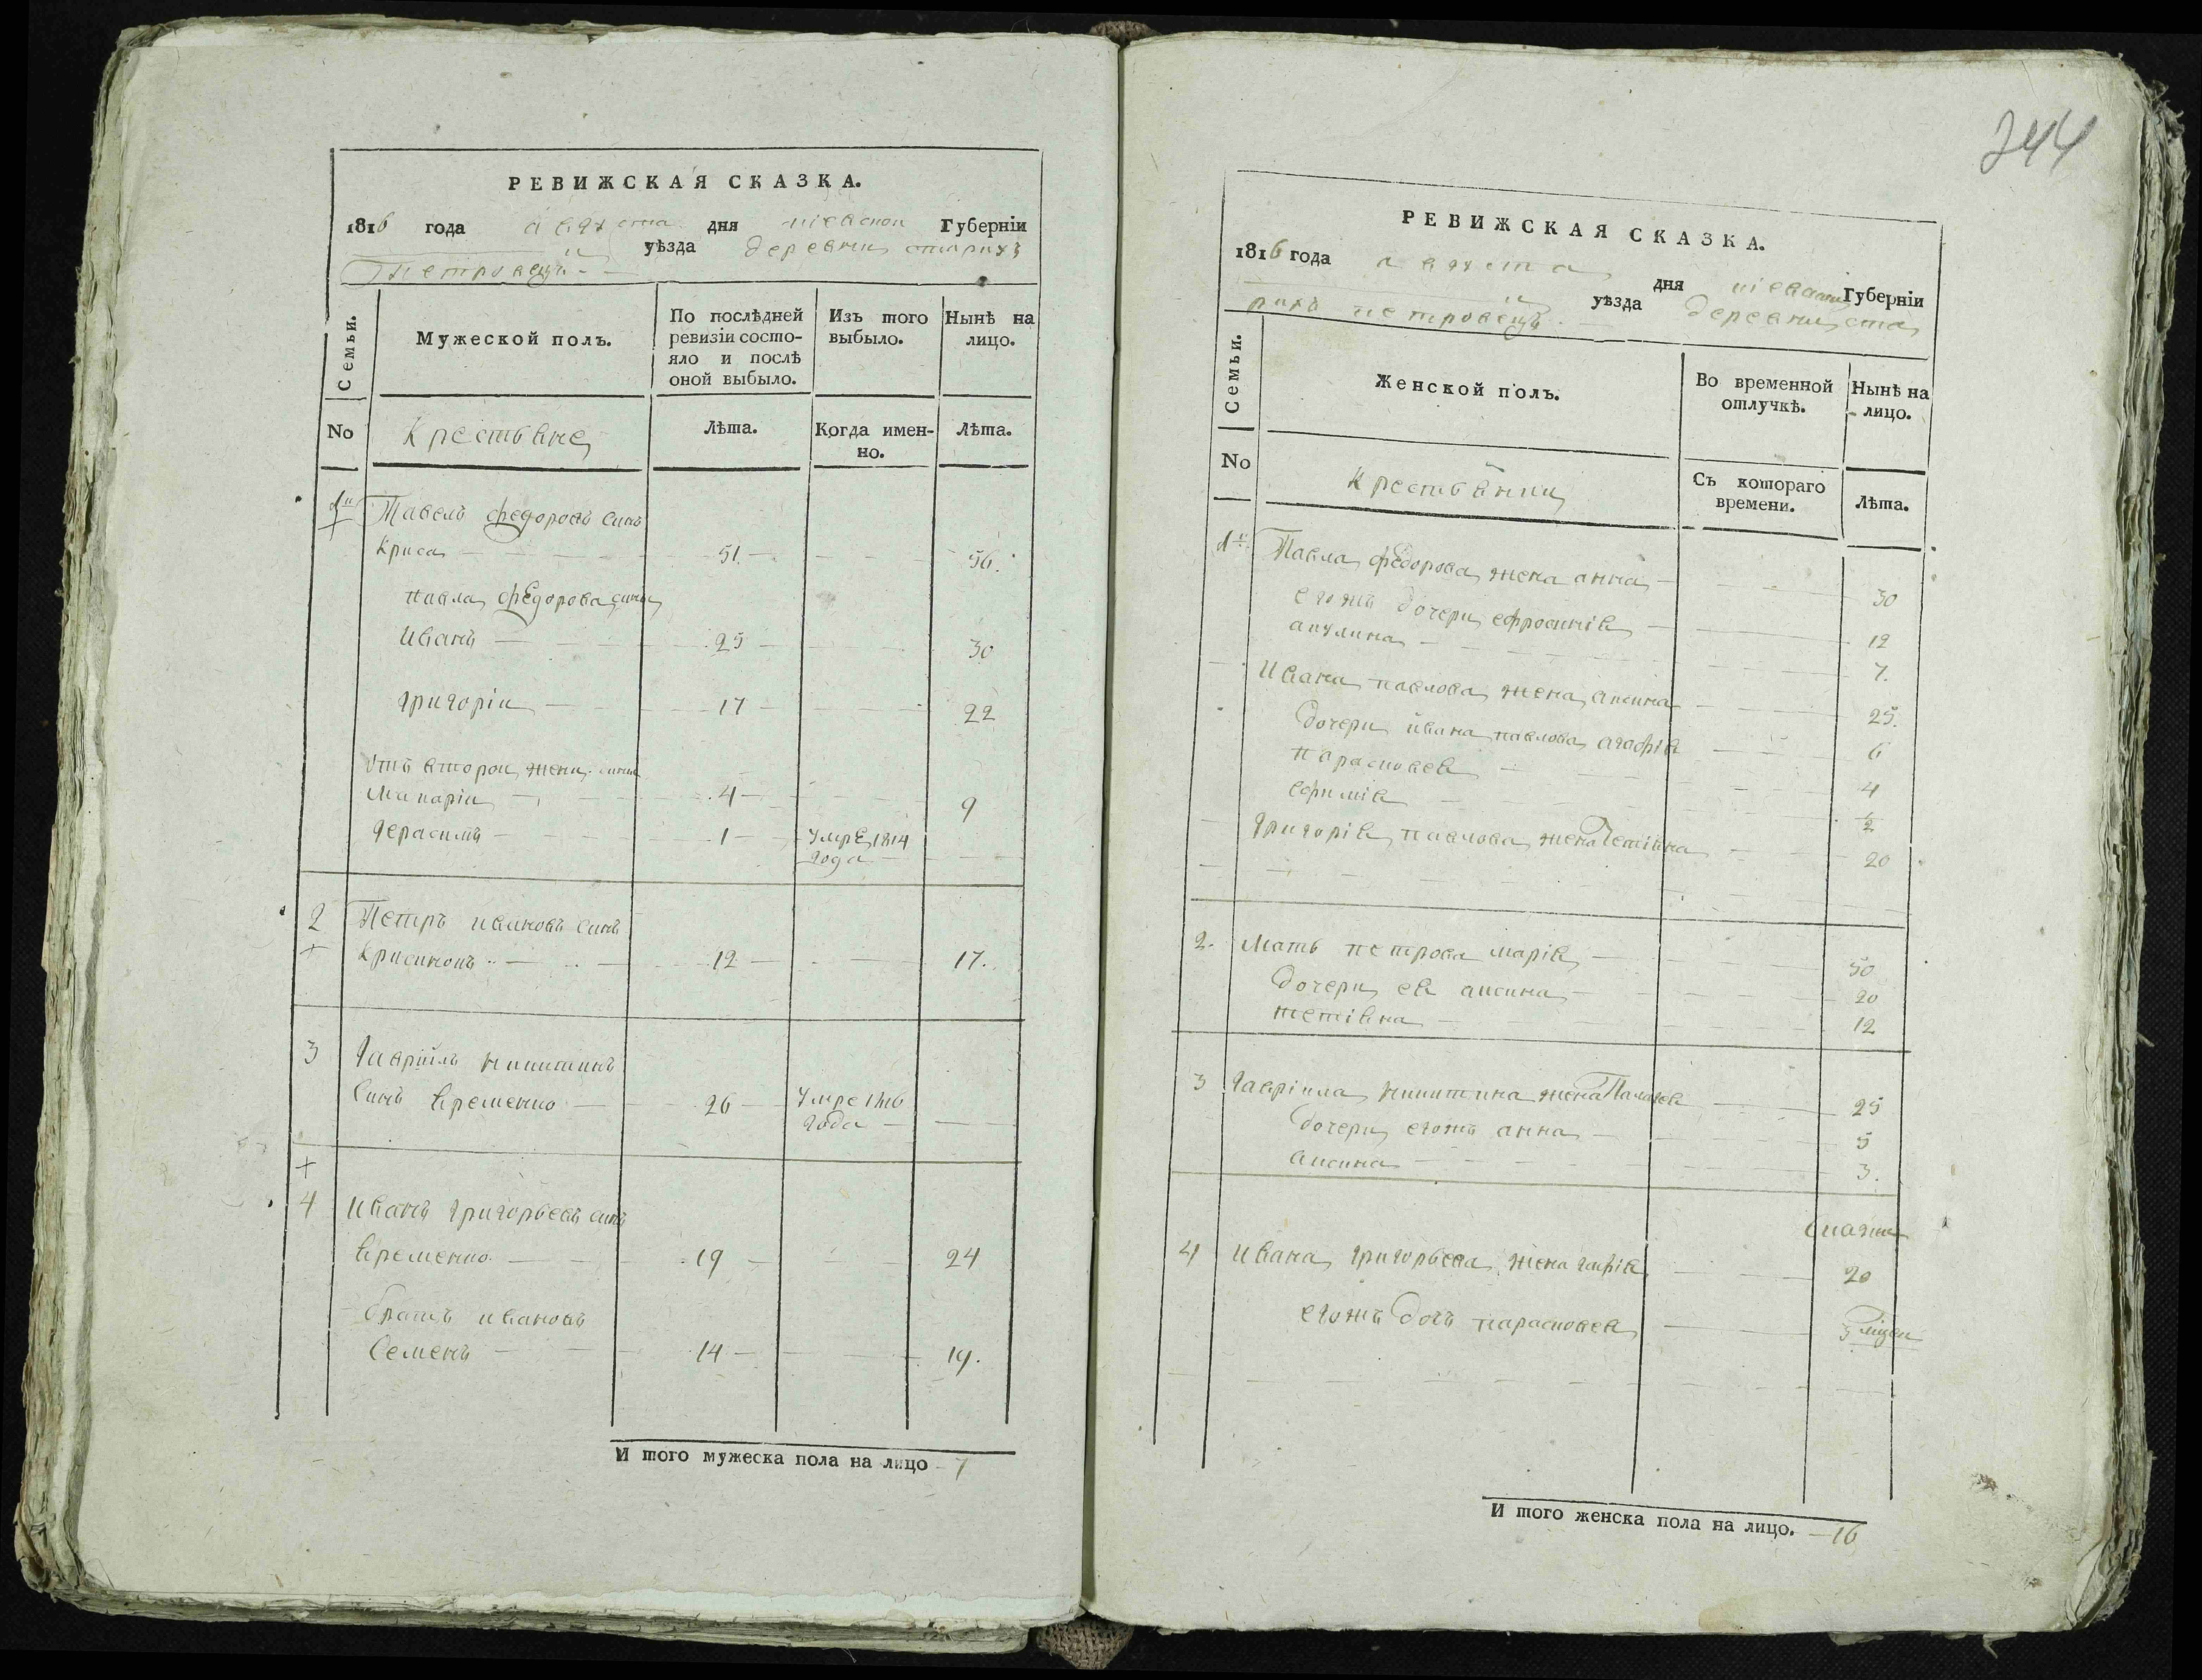 РЕВИЖСКАЯ СКАЗКА.
1816 года августа дня киевской Губерніи
уѣзда деревни старихъ
петровецъ
Семьи. Мужеской полъ. По послѣдней ревизіи состояло и послѣ оной выбыло. Изъ того выбыло. Нынѣ на лицо.
No Крестьяне Лѣта. Когда именно. Лѣта.
1й Павелъ федоровъ синъ
Криса 51 56.
павла федорова сини
Иванъ 25 30
григорій 17 22
отъ второй жени сини
Макарій 4 9
герасимъ 1 умре 1814
года
2 Петръ ивановъ синъ
Крисинокъ 12 17.
3 Гавріилъ никитинъ
синъ Еременко 26 умре 1816
года
4 Иванъ григорьевъ синъ
Еременко 19 24
братъ ивановъ
Семенъ 14 19.
И того мужеска пола на лицо 7
244
РЕВИЖСКАЯ СКАЗКА.
1816 года августа дня киевской Губерніи
рихъ петровецъ уѣзда деревни ста
Семьи. Женской полъ. Во временной отлучкѣ. Нынѣ на лицо.
No Крестьянки Съ котораго времени. Лѣта.
1й Павла федорова жена анна 30
егожъ дочери ефросинія 12
акулина 7.
Ивана павлова жена аксина 25.
дочери ивана павлова агафія 6
парасковея 4
ефимія ½
григорія павлова жена Тетіяна 20
2. Мать петрова марія 50
дочери ея аксина 20
тетіяна 12
3 гавріила никитина жена Палагея 25
дочери егожъ анна 5
аксина 3.
4 Ивана григорьева жена гафія 20
егожъ дочь парасковея 5 міцей
И того женска пола на лицо. 16